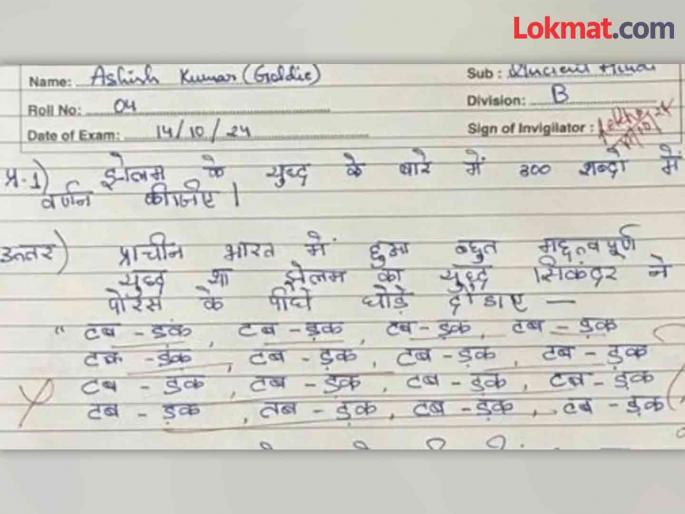 Lokmat.com
Name: Ashish Kumar (Goldie)
Sub : Ancient Hindi
Roll No: 04
Division: B
Date of Exam: 14/10/24
Sign of Invigilator :
प्र.1) झेलम के युध्द के बारे में 300 शब्दों में
वर्णन कीजिए।
उत्तर) प्राचीन भारत में हुआ बहुत महत्वपूर्ण
युध्द था झेलम का युध्द सिकंदर ने
पोरस के पीछे घोड़े दौडाए —
" टब - ड़क, टब - ड़क, टब - ड़क, टब - ड़क
टब - ड़क, टब - ड़क, टब - ड़क, टब - ड़क
टब - ड़क, टब - ड़क, टब - ड़क, टब - ड़क
टब - ड़क, तब - ड़क, टब - ड़क, टब - ड़क